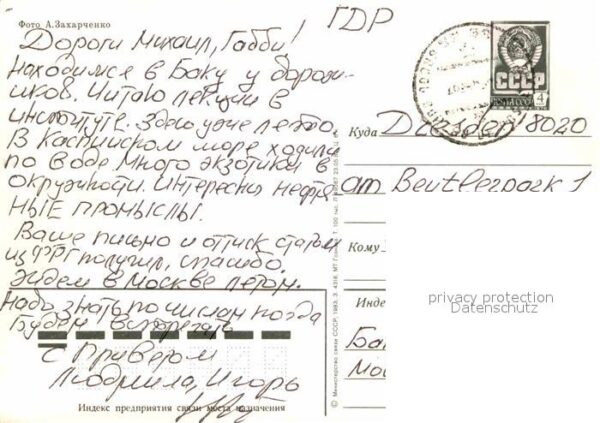 Фото А.Захарченко
ГДР
Дороги Михаил, Габби!
Находимся в Баку у
Читаю лекции в
институте. Здесь уже лето.
В Каспийском море ходили
по воде. Много экзотики в
окружности. Интересны нефтя-
ные промыслы.
Ваше письмо и оттиск статьи
из ФРГ получил, спасибо.
Ждем в Москве летом.
Надо знать по числам когда
Будем встречать
С Приветом
Людмила, Игорь
Индекс предприятия связи места назначения
СССР
ПОЧТА СССР
4
Куда Dresden 8020
am Beutlerpark 1
Кому
Инде
Ба
Мо
privacy protection
Datenschutz
© Министерство связи СССР, 1983.